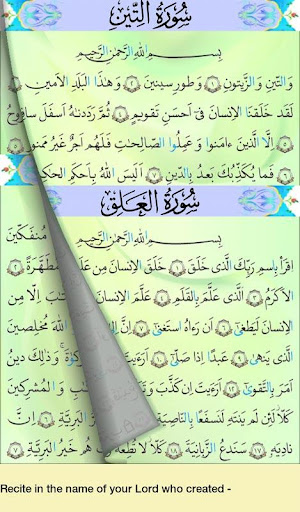 سُورَةُ التِّينِ
بِسْمِ اللهِ الرَّحْمٰنِ الرَّحِيمِ
وَالتِّينِ وَالزَّيْتُونِ ﴿١﴾ وَطُورِ سِينِينَ ﴿٢﴾ وَهٰذَا الْبَلَدِ الْاَمِينِ ﴿٣﴾
لَقَدْ خَلَقْنَا الْاِنْسَانَ فِىٓ اَحْسَنِ تَقْوِيمٍ ﴿٤﴾ ثُمَّ رَدَدْنٰهُ اَسْفَلَ
﴿٥﴾ اِلَّا الَّذِينَ ءَامَنُوا وَعَمِلُوا الصَّالِحٰتِ فَلَهُمْ اَجْرٌ غَيْرُ
﴿٦﴾ فَمَا يُكَذِّبُكَ بَعْدُ بِالدِّينِ ﴿٧﴾ اَلَيْسَ اللهُ بِاَحْكَمِ
سُورَةُ الْعَلَقِ
بِسْمِ اللهِ الرَّحْمٰنِ الرَّحِيمِ مُنْفَكِّينَ
اِقْرَاْ بِاسْمِ رَبِّكَ الَّذِى خَلَقَ ﴿١﴾ خَلَقَ الْاِنْسَانَ مِنْ مُطَهَّرَةً
الْاَكْرَمُ ﴿٣﴾ الَّذِى عَلَّمَ بِالْقَلَمِ ﴿٤﴾ عَلَّمَ الْاِنْسَانَ اِلَّا مِنْ
لَيَطْغٰىٓ ﴿٦﴾ اَنْ رَاٰهُ اسْتَغْنٰى ﴿٧﴾ اِنَّ مُخْلِصِينَ
الَّذِى يَنْهٰى ﴿٩﴾ عَبْدًا اِذَا صَلّٰى ﴿١٠﴾ وَذٰلِكَ دِينُ
اَمَرَ بِالتَّقْوٰى ﴿١٢﴾ اَرَاَيْتَ اِنْ كَذَّبَ وَالْمُشْرِكِينَ
كَلَّا لَئِنْ لَمْ يَنْتَهِ لَنَسْفَعًا بِالنَّاصِيَةِ ﴿١٥﴾ الْبَرِيَّةِ
نَادِيَهُ ﴿١٧﴾ سَنَدْعُ الزَّبَانِيَةَ ﴿١٨﴾ كَلَّا لَا تُطِعْهُ هُمْ خَيْرُ الْبَرِيَّةِ ﴿٧﴾
Recite in the name of your Lord who created -